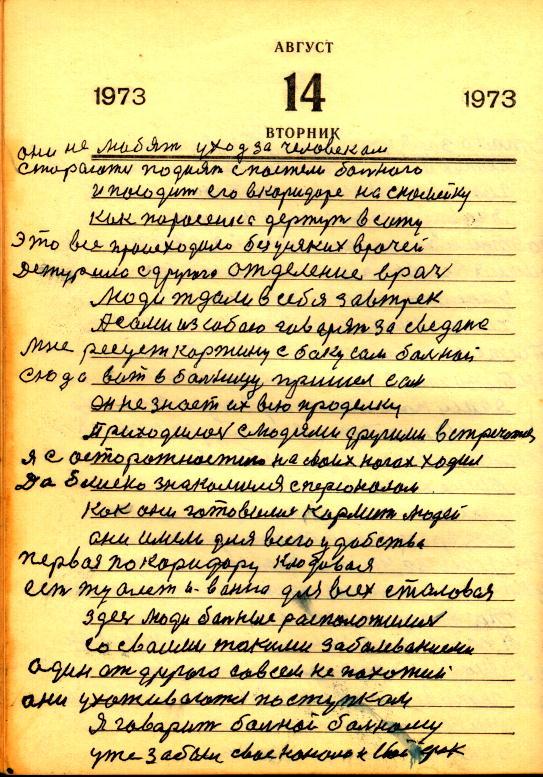 АВГУСТ
1973 14 1973
ВТОРНИК
они не любят уход за человекам
стораются поднят спостели болного
и походит его вкоридоре на скомейку
как поросенка держут всаду
Это все происходило без уняких врачей
Детурило сдругого отделение врач
Люди ждали всебя завтрек
А сами из собою говарят за сведане
мне ресует картину с баку сам болной
сюда вот в болницу пришел сам
он не знает их всю проделку
Приходилос слюдями другими встречатся
я с осторожностию на своих ногах ходил
Да близко знакомился сперсоналом
как они готовилис кормит людей
они имель для всего удобства
первая по коридору кладовая
ест туалет и ванна для всех сталовая
здес люди болные расположилис
со сваими такими заболеваниеми
один от другого совсем не похожий
они ухаживаются поступкам
Я говарит болной болному
уже забыл свое